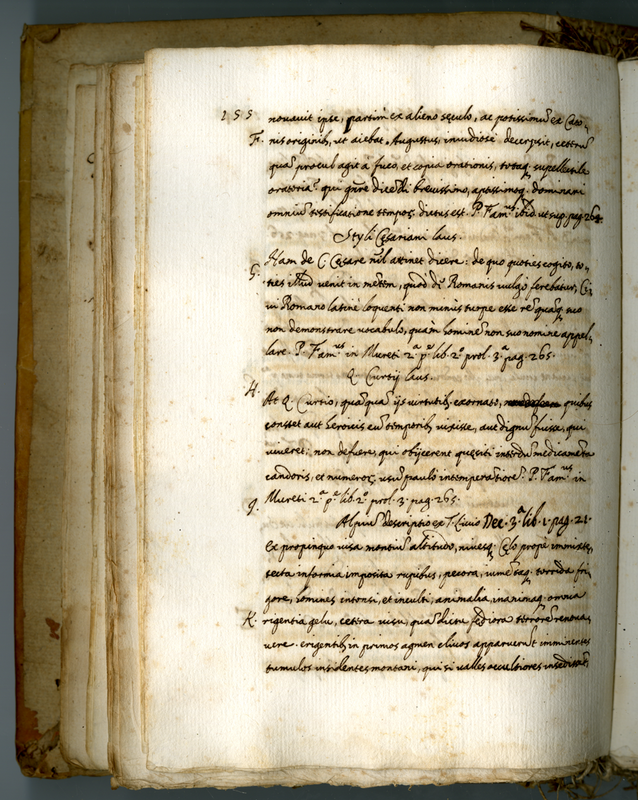 155 novauit ipse, partim ex alieno sęculo, ac potissimũ ex Cato-
F. nis originib, ut aiebat Augustus, inuidiosè decerpsit, cettrũ
quã procul agit à fuco, et copia orationis, totaq supellectile
oratoria? qui gñre dicẽdi breuissimo, aptissimoq dominari
omniũ testificatione tempos dictus est. P. Fam.us ibid. ut sup. pag 264.
Styli Cęsariani laus.
G. Nam de C. Cęsare nil attinet dicere: de quo quoties cogito, to-
ties illud venit in mẽtm, quod dr Romanis vulgò ferebatur, Ci-
ui Romano latinè loquenti non minùs turpe esse rẽ quãq suo
non demonstrare vocabulo, quàm hominẽ non suo nomine appel-
lare. P. Fam.us in Mureti 2.a p.a lib. 2.o prol. 3.a pag. 265.
Q. Curtij laus.
H. At Q. Curtio, quãquã ijs virtutib. exornato, quibus
constet aut heroicis eũ temporib, vixisse, aut dignũ fuisse, qui
viueret: non defuere, qui obijcerent quęsiti interdũ medicamẽta
candoris, et numeros, usũ paulò intemperatiorẽ. P. Fam.us in
Mureti 2.a p.a lib. 2.o prol. 3. pag. 265.
9. Alpiũ descriptio ex T. Liuio Dec. 3.a lib. 1. pag. 21.
Ex propinquo visa montiũ altitudo, niuesq Cęlo propè immixtę,
tecta informia imposita rupibus, pecora, iumẽtaq torrida fri-
gore, homines intonsi, et inculti, animalia, inanimaq omnia
K. rigentia gelu, cettra visu, quã dictu fędiora terrorẽ renoua-
vere. erigentib, in primos agmen cliuos apparuerũt imminentes
tumulos insidentes montani, qui si valles occultiores insedissẽt,